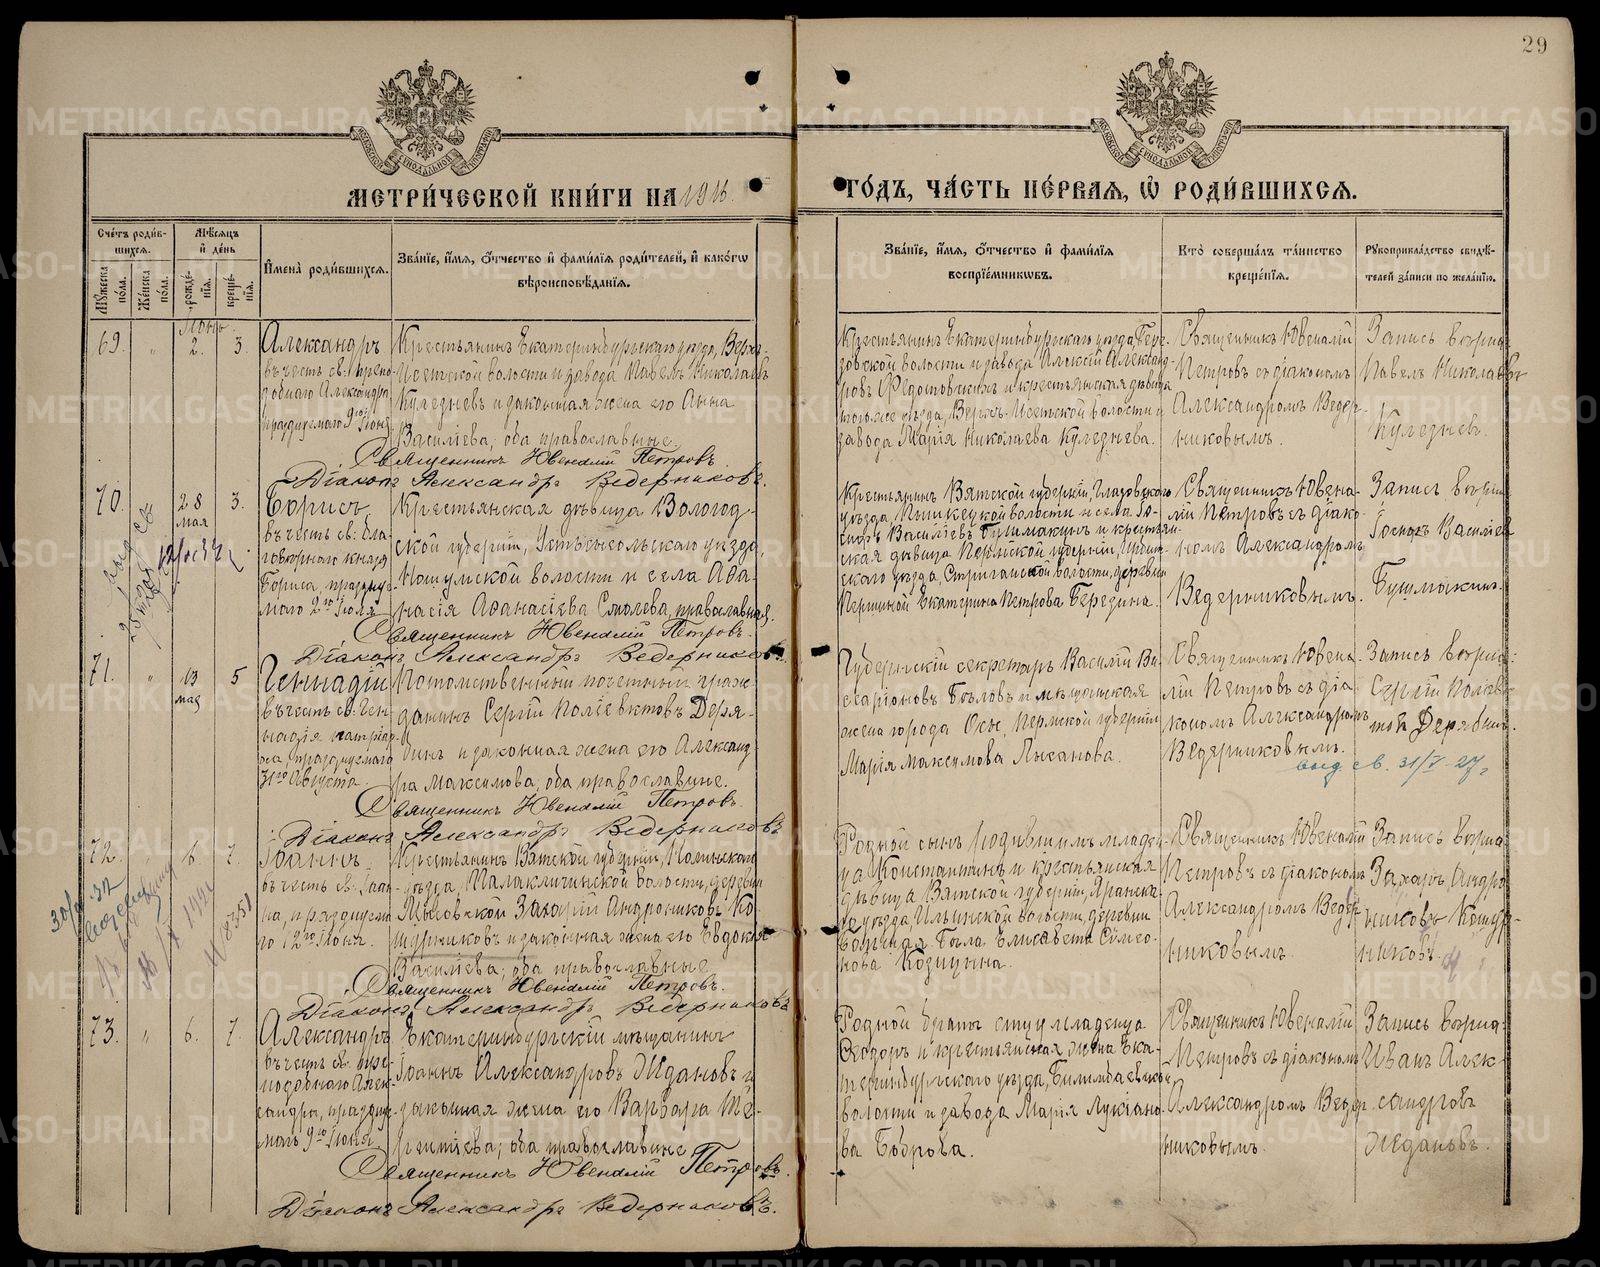 29
МОСКОВСКОЙ СИНОДАЛЬНОЙ ТИПОГРАФІИ
МЕТРИ́ЧЕСКОЙ КНИ́ГИ НА 1916.
ГО́ДЪ, ЧА́СТЬ ПЕ́РВАѦ, Ѡ҆ РОДИ́ВШИХСѦ.
Сче́тъ роди́в-
шихсѧ.
Мꙋ́жеска по́ла.
Же́нска по́ла.
Мѣ́сѧцъ
и҆ де́нь
рожде́-
нїѧ.
креще́-
нїѧ.
И҆мена̀ роди́вшихсѧ.
Зва́нїе, и҆́мѧ, ѻ҆́тчество и҆ фамі́лїѧ роди́телей, и҆ како́гѡ
вѣроисповѣ́данїѧ.
Зва́нїе, и҆́мѧ, ѻ҆́тчество и҆ фамі́лїѧ
воспрїе́мникѡвъ.
Кто̀ соверша́лъ та́инство
креще́нїѧ.
Рꙋкоприкла́дство свидѣ́-
телей за́писи по жела́нїю.
Іюнь.
69. " 2. 3.
Александръ
въ честь св. препо-
добнаго Александра,
празднуемаго 9го Іюня.
Крестьянинъ Екатеринбургскаго уѣзда, Верхъ-
Исетской волости и завода Павелъ Николаевъ
Кулезневъ и законная жена его Анна
Василіева, оба православные.
Священникъ Ювеналій Петровъ
Діаконъ Александръ Ведерниковъ.
Крестьянинъ Екатеринбургскаго уѣзда, Бере-
зовской волости и завода Алексій Александ-
ровъ Федотовскихъ и крестьянская дѣвица
того же уѣзда, Верхъ-Исетской волости и
завода Марія Николаева Кулезнева.
Священникъ Ювеналій
Петровъ съ діакономъ
Александромъ Ведер-
никовымъ.
Запись вѣрна
Павелъ Николаевъ
Кулезневъ.
70. 28 мая 3.
Борисъ
въ честь св. бла-
говѣрнаго князя
Бориса, праздну-
маго 2го Іюля
Крестьянская дѣвица Вологод-
ской губерніи, Устьсысольскаго уѣзда,
Ношульской волости и села Афа-
насія Афанасіева Смолева, православная.
Священникъ Ювеналій Петровъ.
Діаконъ Александръ Ведерниковъ.
Крестьянинъ Вятской губерніи, Глазовскаго
уѣзда, волости и села Іо-
сифъ Василіевъ Бушмакинъ и крестьян-
ская дѣвица Пермской губерніи, Ирбит-
скаго уѣзда, Стриганской волости, деревни
Першиной Екатерина Петрова Березина.
Священникъ Ювена-
лій Петровъ съ діако-
номъ Александромъ
Ведерниковымъ.
Запись вѣрна
Іосифъ Василіевъ
Бушмакинъ.
71. " 13 мая 5
Геннадій
въ честь св. Ген-
надія патріар-
ха, празднуемаго
31го Августа.
Потомственный почетный граж-
данинъ Сергій Поліевктовъ Деря-
бинъ и законная жена его Александ-
ра Максимова, оба православные.
Священникъ Ювеналій Петровъ.
Діаконъ Александръ Ведерниковъ
Губернскій секретарь Василій Ви-
саріоновъ Бѣловъ и мѣщанская
жена города Осы, Пермской губерніи
Марія Максимова Лысанова.
Священникъ Ювена-
лій Петровъ съ діа-
кономъ Александромъ
Ведерниковымъ.
Запись вѣрна:
Сергій Поліевк-
товъ Дерябинъ.
выд. св. 31/V-27г
72. " 6. 7.
Іоаннъ
въ честь св. Іоан-
на, праздуема-
го 12го Іюня.
Крестьянинъ Вятской губерніи, Нолинскаго
уѣзда, волости, деревни
Захарій Андрониковъ Ко-
шурниковъ и законная жена его Евдокія
Василіева, оба православные
Священникъ Ювеналій Петровъ.
Діаконъ Александръ Ведерниковъ
Родной сынъ младен-
ца Константинъ и крестьянская
дѣвица Вятской губерніи, Яранска-
го уѣзда, Ильинской волости, деревни
Елисавета Симео-
нова Козицина.
Священникъ Ювеналій
Петровъ съ діакономъ
Александромъ Ведер-
никовымъ.
Запись вѣрна
Захаръ Андро-
никовъ Кошур-
никовъ.
73. " 6. 7.
Александръ
въ честь св. пре-
подобнаго Алек-
сандра, праздуе-
маго 9го Іюня
Екатеринбургскій мѣщанинъ
Іоаннъ Александровъ Ждановъ и
законная жена его Варвара Те-
рентіева; оба православные
Священникъ Ювеналій Петровъ.
Діаконъ Александръ Ведерниковъ.
Родной братъ отцу младенца
Феодоръ и крестьянская жена Ека-
теринбургскаго уѣзда, Билимбаевской
волости и завода Марія Лукіано-
ва Боброва.
Священникъ Ювеналій
Петровъ съ діакономъ
Александромъ Ведер-
никовымъ.
Запись вѣрна:
Иванъ Алек-
сандровъ
Ждановъ.
METRIKI.GASO-URAL.RU